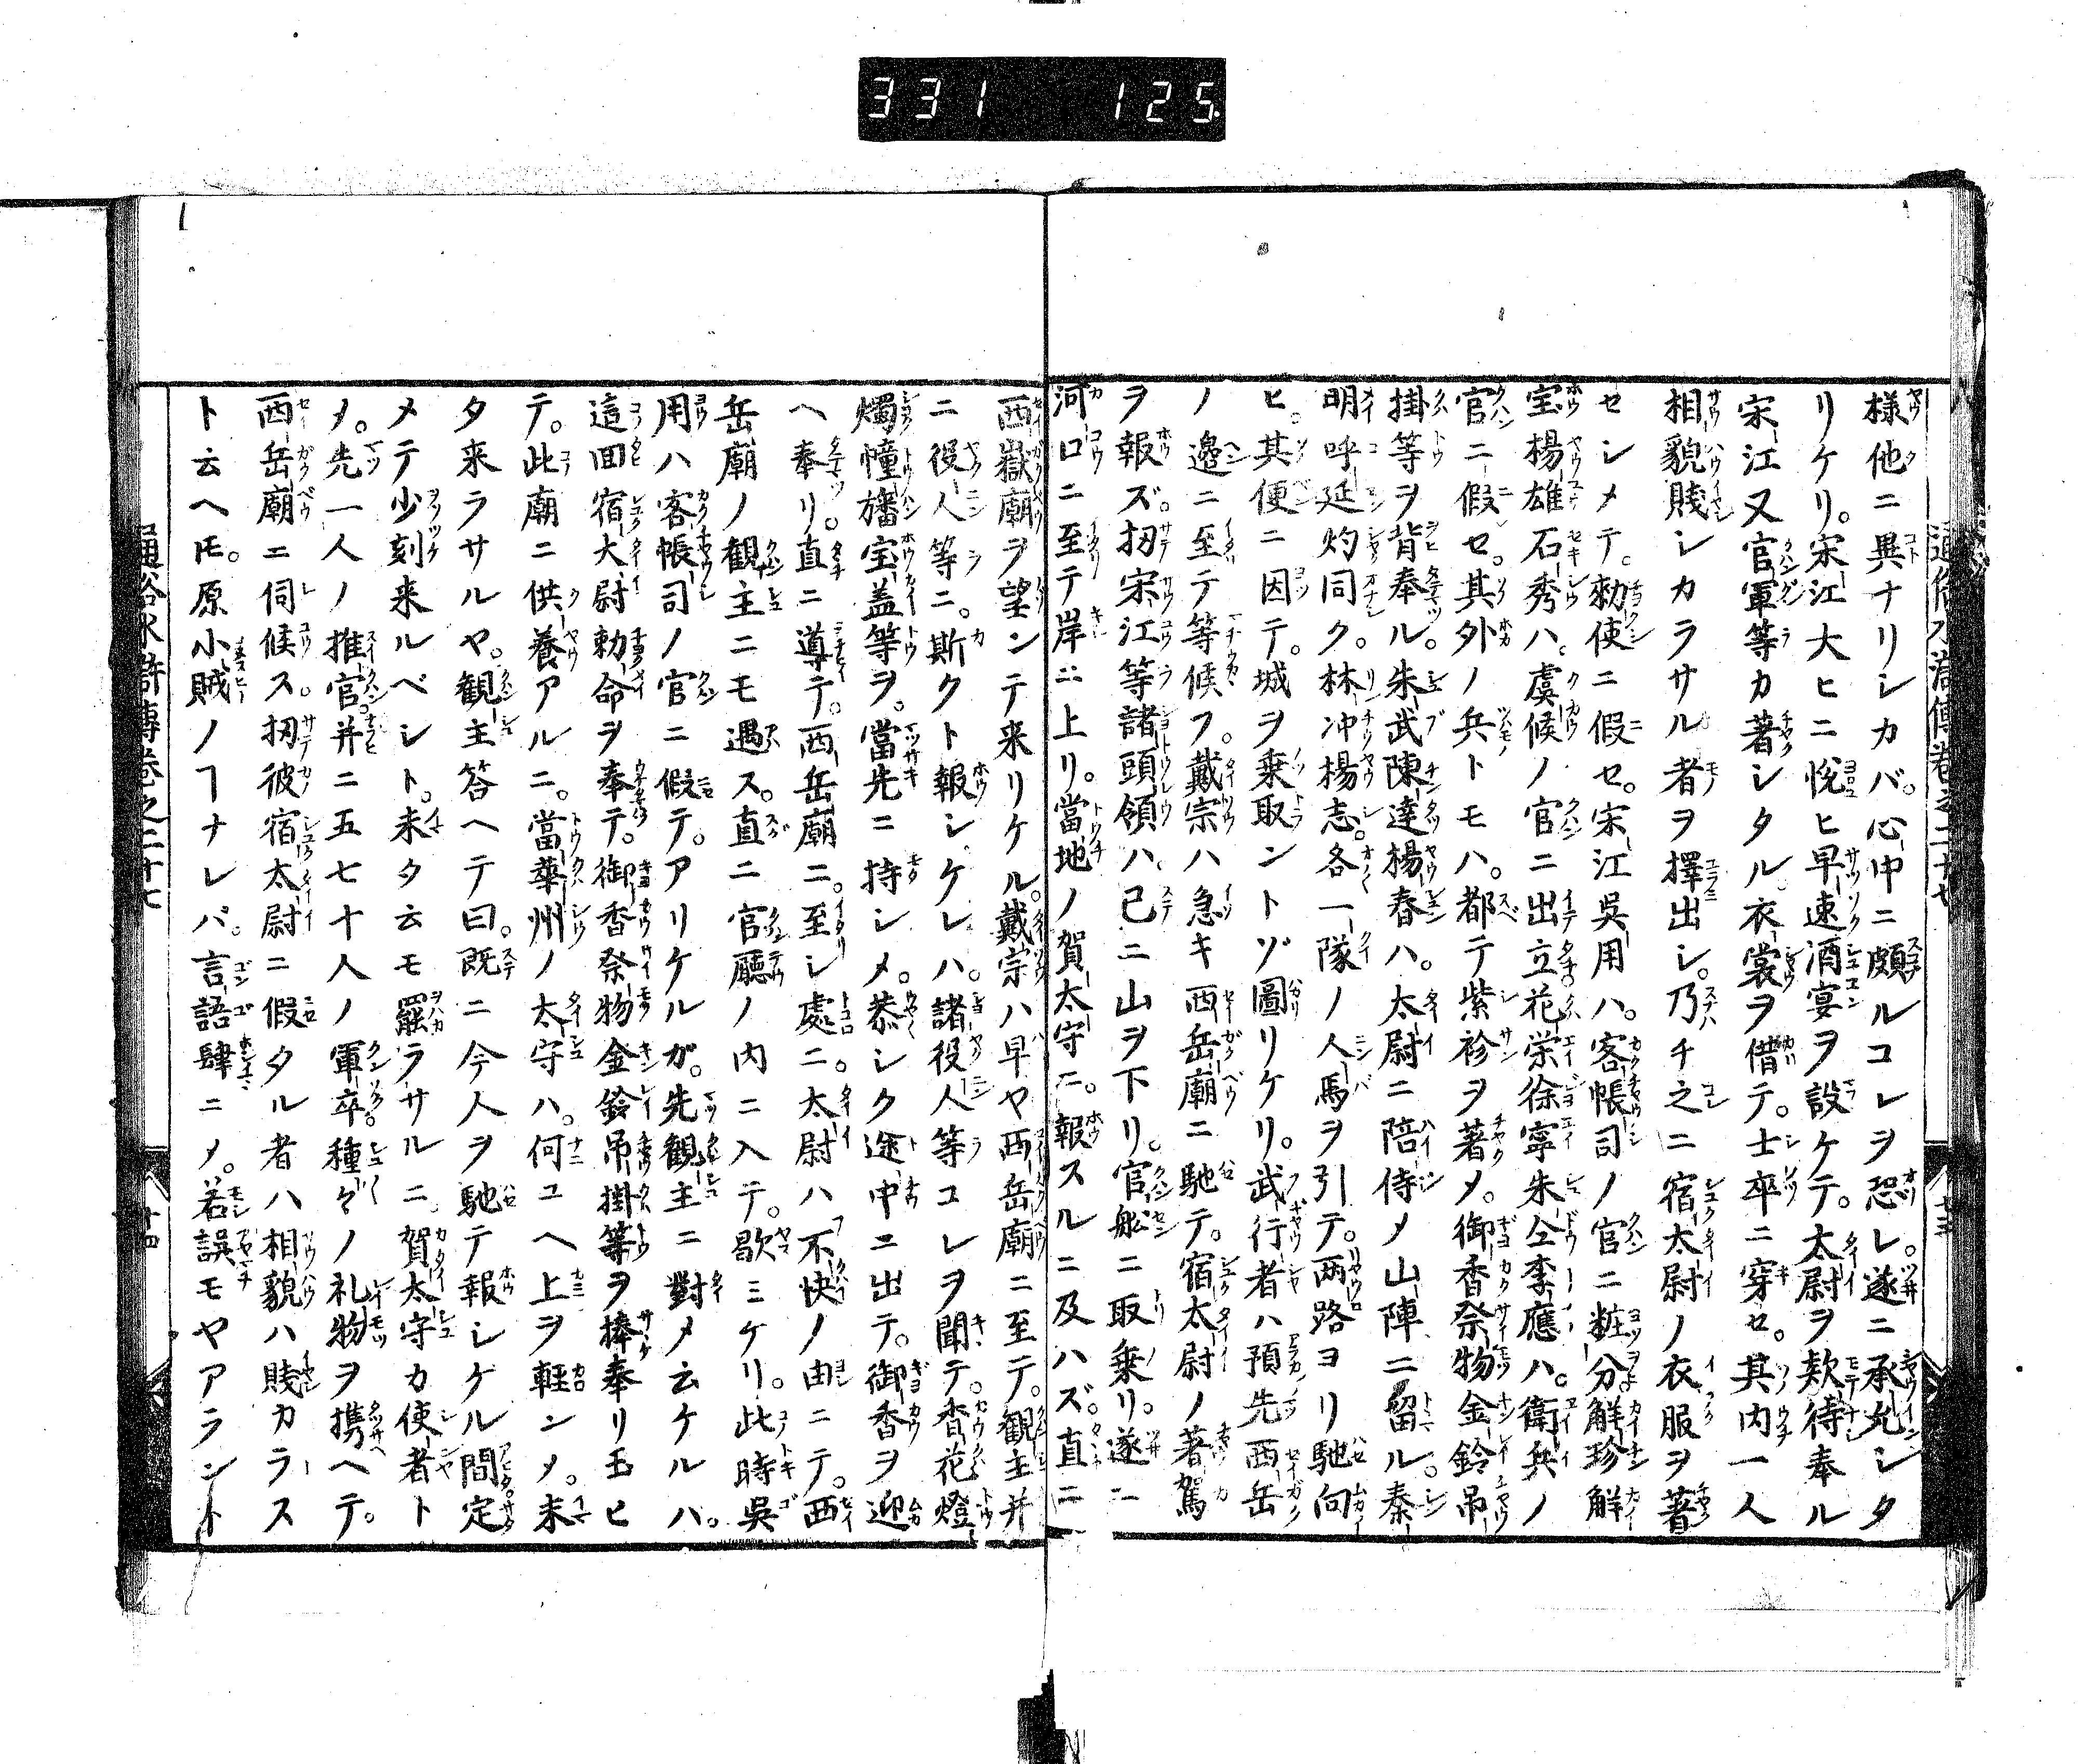 331 125
通俗水滸傳卷之二十七
様他ニ異ナリシカバ。心中ニ頗ルコレヲ恐レ。遂ニ承允シタ
リケリ。宋江大ヒニ悦ヒ早速酒宴ヲ設ケテ。太尉ヲ欵待奉ル
宋江又官軍等カ著シタル衣裳ヲ借テ。士卒ニ穿セ。其内一人
相貌賤シカラサル者ヲ擇出シ。乃チ之ニ宿太尉ノ衣服ヲ著
セシメテ。勅使ニ假セ。宋江呉用ハ。客帳司ノ官ニ粧分觧珍觧
宝楊雄石秀ハ。虞候ノ官ニ出立花栄徐寧朱仝李應ハ。衛兵ノ
官ニ假セ。其外ノ兵トモハ。都テ紫衫ヲ著メ。御香祭物金鈴吊
掛等ヲ背奉ル。朱武陳達楊春ハ。太尉ニ陪侍メ山陣ニ留ル。秦
明呼延灼同ク。林冲楊志。各一隊ノ人馬ヲ引テ。两路ヨリ馳向
ヒ。其便ニ因テ。城ヲ乗取ントゾ圖リケリ。武行者ハ預先西岳
ノ邉ニ至テ等候フ。戴宗ハ急キ西岳廟ニ馳テ。宿太尉ノ著駕
ヲ報ズ。扨宋江等諸頭領ハ已ニ山ヲ下リ。官舩ニ取乗リ。遂ニ
河口ニ至テ岸ニ上リ。當地ノ賀太守ニ。報スルニ及ハズ。直ニ
西嶽廟ヲ望ンテ来リケル。戴宗ハ早ヤ西岳廟ニ至テ。観主并
ニ役人等ニ。斯クト報シケレハ。諸役人等コレヲ聞テ。香花燈
燭幢旛宝盖等ヲ。當先ニ持シメ。恭シク途中ニ出テ。御香ヲ迎
ヘ奉リ。直ニ導テ。西岳廟ニ。至シ處ニ。太尉ハ不快ノ由ニテ。西
岳廟ノ観主ニモ遇ス。直ニ官廳ノ内ニ入テ。歇ミケリ。此時呉
用ハ客帳司ノ官ニ假テ。アリケルガ。先観主ニ對メ云ケルハ。
這回宿大尉勅命ヲ奉テ。御香祭物金鈴吊掛等ヲ捧奉リ玉ヒ
テ。此廟ニ供養アルニ。當華州ノ太守ハ。何ユヘ上ヲ軽ンメ。未
タ来ラサルヤ。観主答ヘテ曰。既ニ今人ヲ馳テ報シケル間定
メテ少刻来ルベシト。未タ云モ罷ラサルニ。賀太守カ使者ト
メ。先一人ノ推官。并ニ五七十人ノ軍卒。種々ノ礼物ヲ携ヘテ。
西岳廟ニ伺候ス。扨彼宿太尉ニ假タル者ハ相貌ハ賎カラス
ト云ヘ𪜈。原小賊ノヿナレバ。言語肆ニメ。若誤モヤアラント
通俗水滸傳卷之二十七
十四